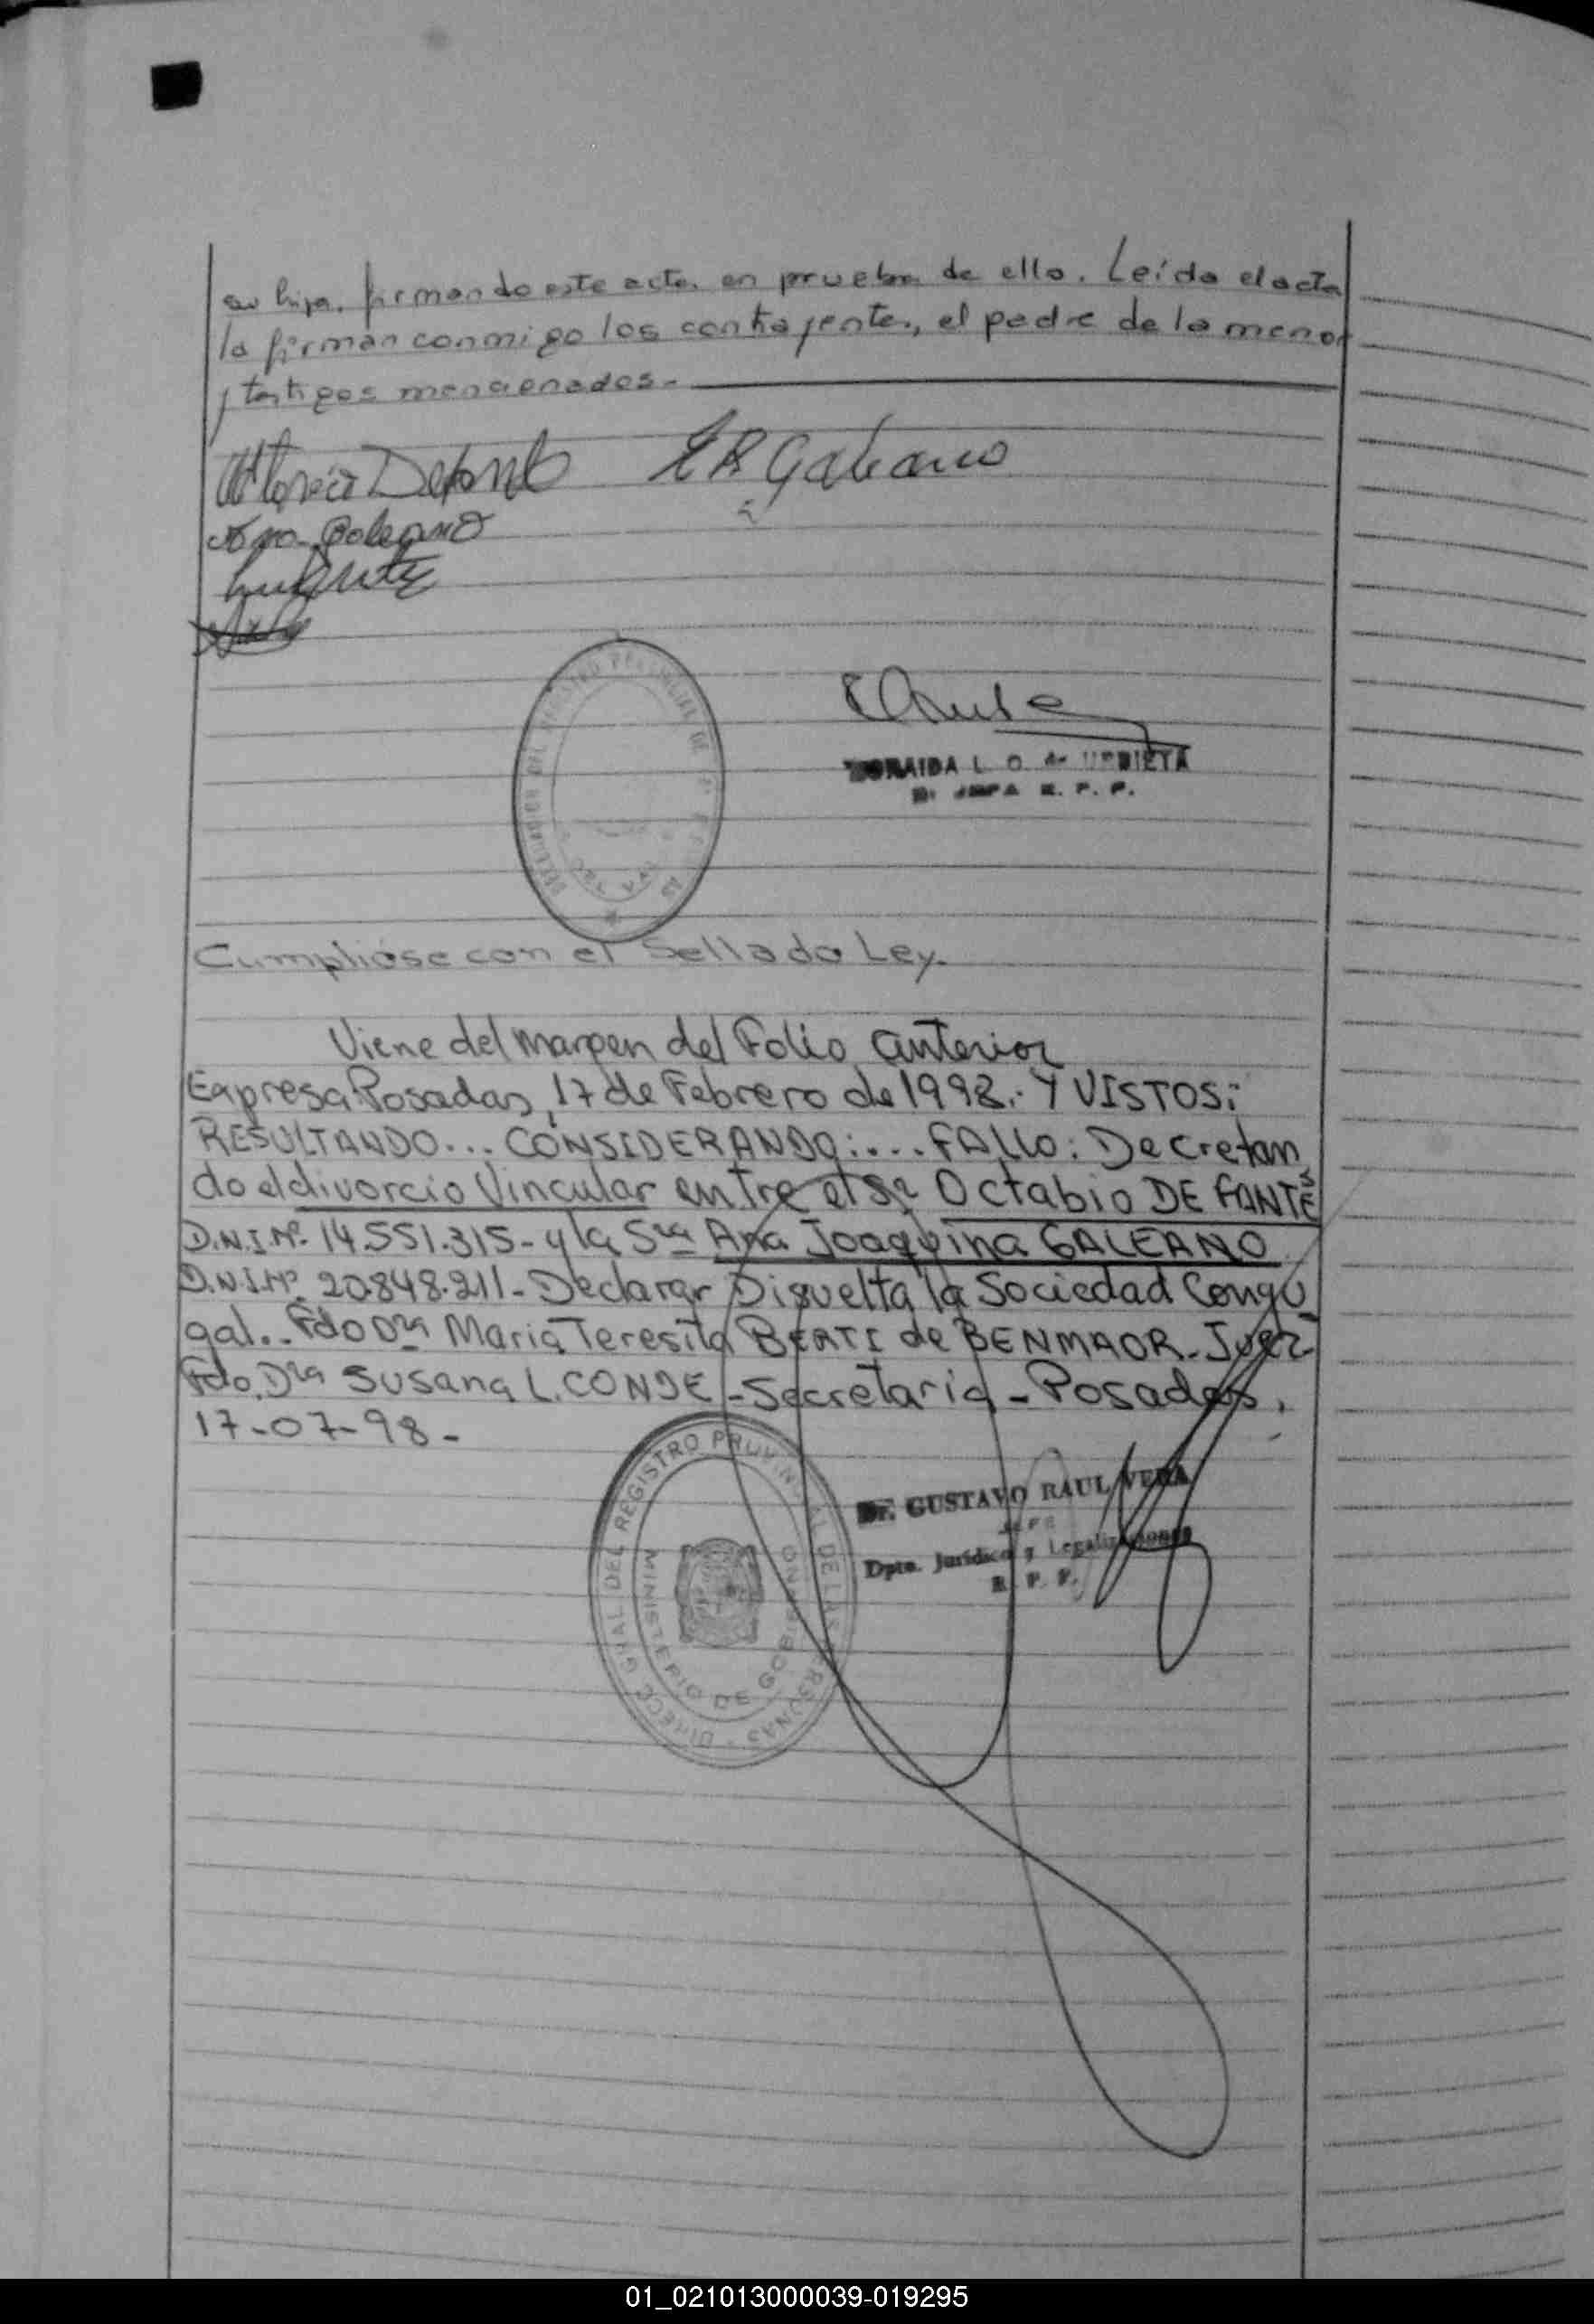 su hija. firmando este acta en prueba de ello. Leída el acta
la firman conmigo los contrayentes, el padre de la menor
y testigos mencionados.-
E R Galeano
Ana Galeano
REGISTRO PROVINCIAL DE
ZORAIDA L. O. de URRIETA
R. P. P.
Cumplióse con el Sellado Ley.
Viene del Margen del Folio anterior
Expresa: Posadas, 17 de Febrero de 1998.- Y VISTOS:
RESULTANDO... CONSIDERANDO:.... FALLO: Decretan
do el divorcio Vincular entre el Sr Octabio DE FANTES
D.N.I.Nº 14.551.315- y la Sra Ana Joaquina GALEANO
D.N.I.Nº 20.848.211- Declarar Disuelta la Sociedad Conyu
gal.- Fdo Dra Maria Teresita BERTI de BENMAOR- Juez
Fdo. Dra Susana L. CONDE - Secretaria - Posadas,
17-07-98-
DIRECC. GRAL DEL REGISTRO PROVINCIAL DE LAS PERSONAS
MINISTERIO DE GOBIERNO
Dr. GUSTAVO RAUL VERA
JEFE
Dpto. Jurídico y Legalizaciones
R. P. P.
01_021013000039-019295